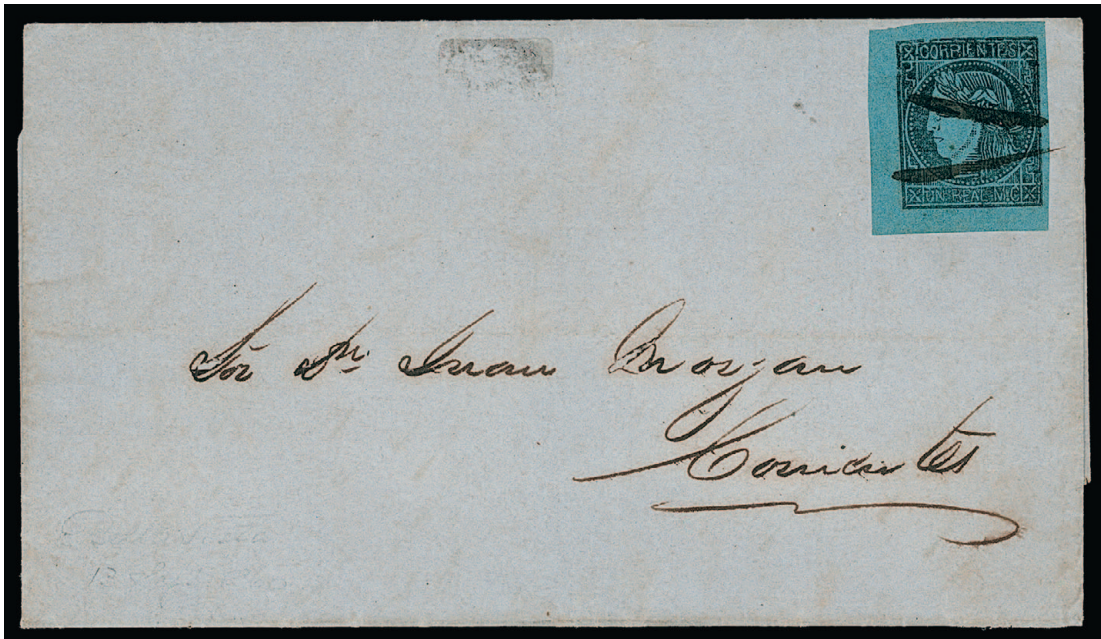 CORRIENTES
UN REAL M.C.
Sor Dn Juan Morgan
Corrientes